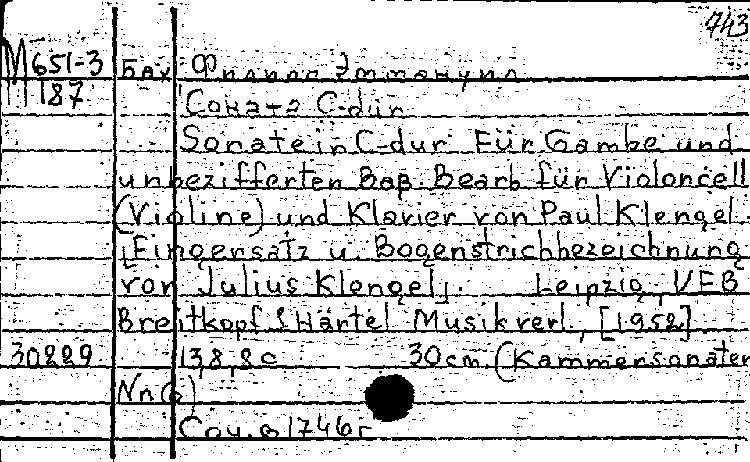 743
М651-3 Бах Филипп Эммануил
187 Соната C-dur
Sonate in C-dur Für Gambe und
unbezifferten Baß. Bearb für Violoncell
(Violine) und Klavier von Paul Klengel.
[Fingersatz u. Bogenstrichbezeichnung
von Julius Klengel]. Leipzig, VEB
Breitkopf & Härtel Musikverl., [1952]
30229 13,8,8 с 30 cm. (Kammersonaten
Nn(6)
Соч. в 1746 г